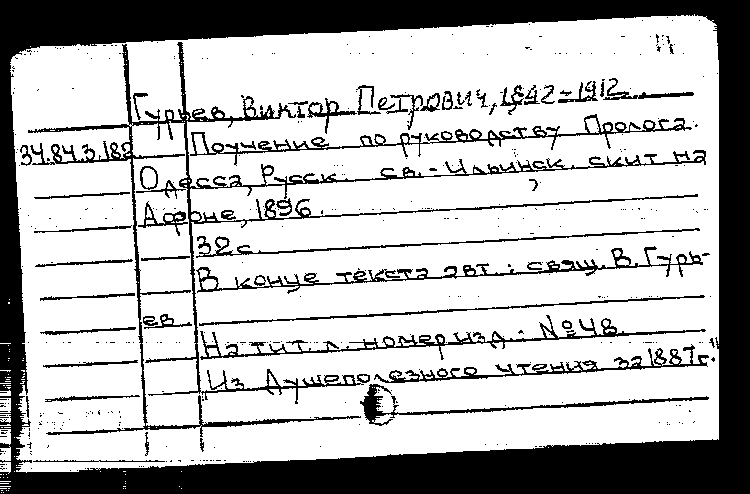 Гурьев, Виктор Петрович, 1842-1912.
34.84.3.182 Поучение по руководству Пролога.
Одесса, Русск. св.-Ильинск. скит на
Афоне, 1896.
32 с.
В конце текста авт.: свящ. В. Гурь-
ев
На тит. л. номер изд.: №48.
Из Душеполезного чтения за 1887г."